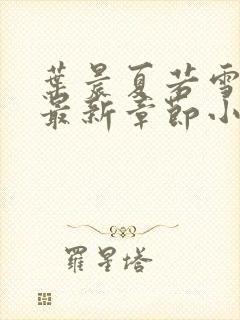 葉晨夏若雪
最新章節小
羅星塔